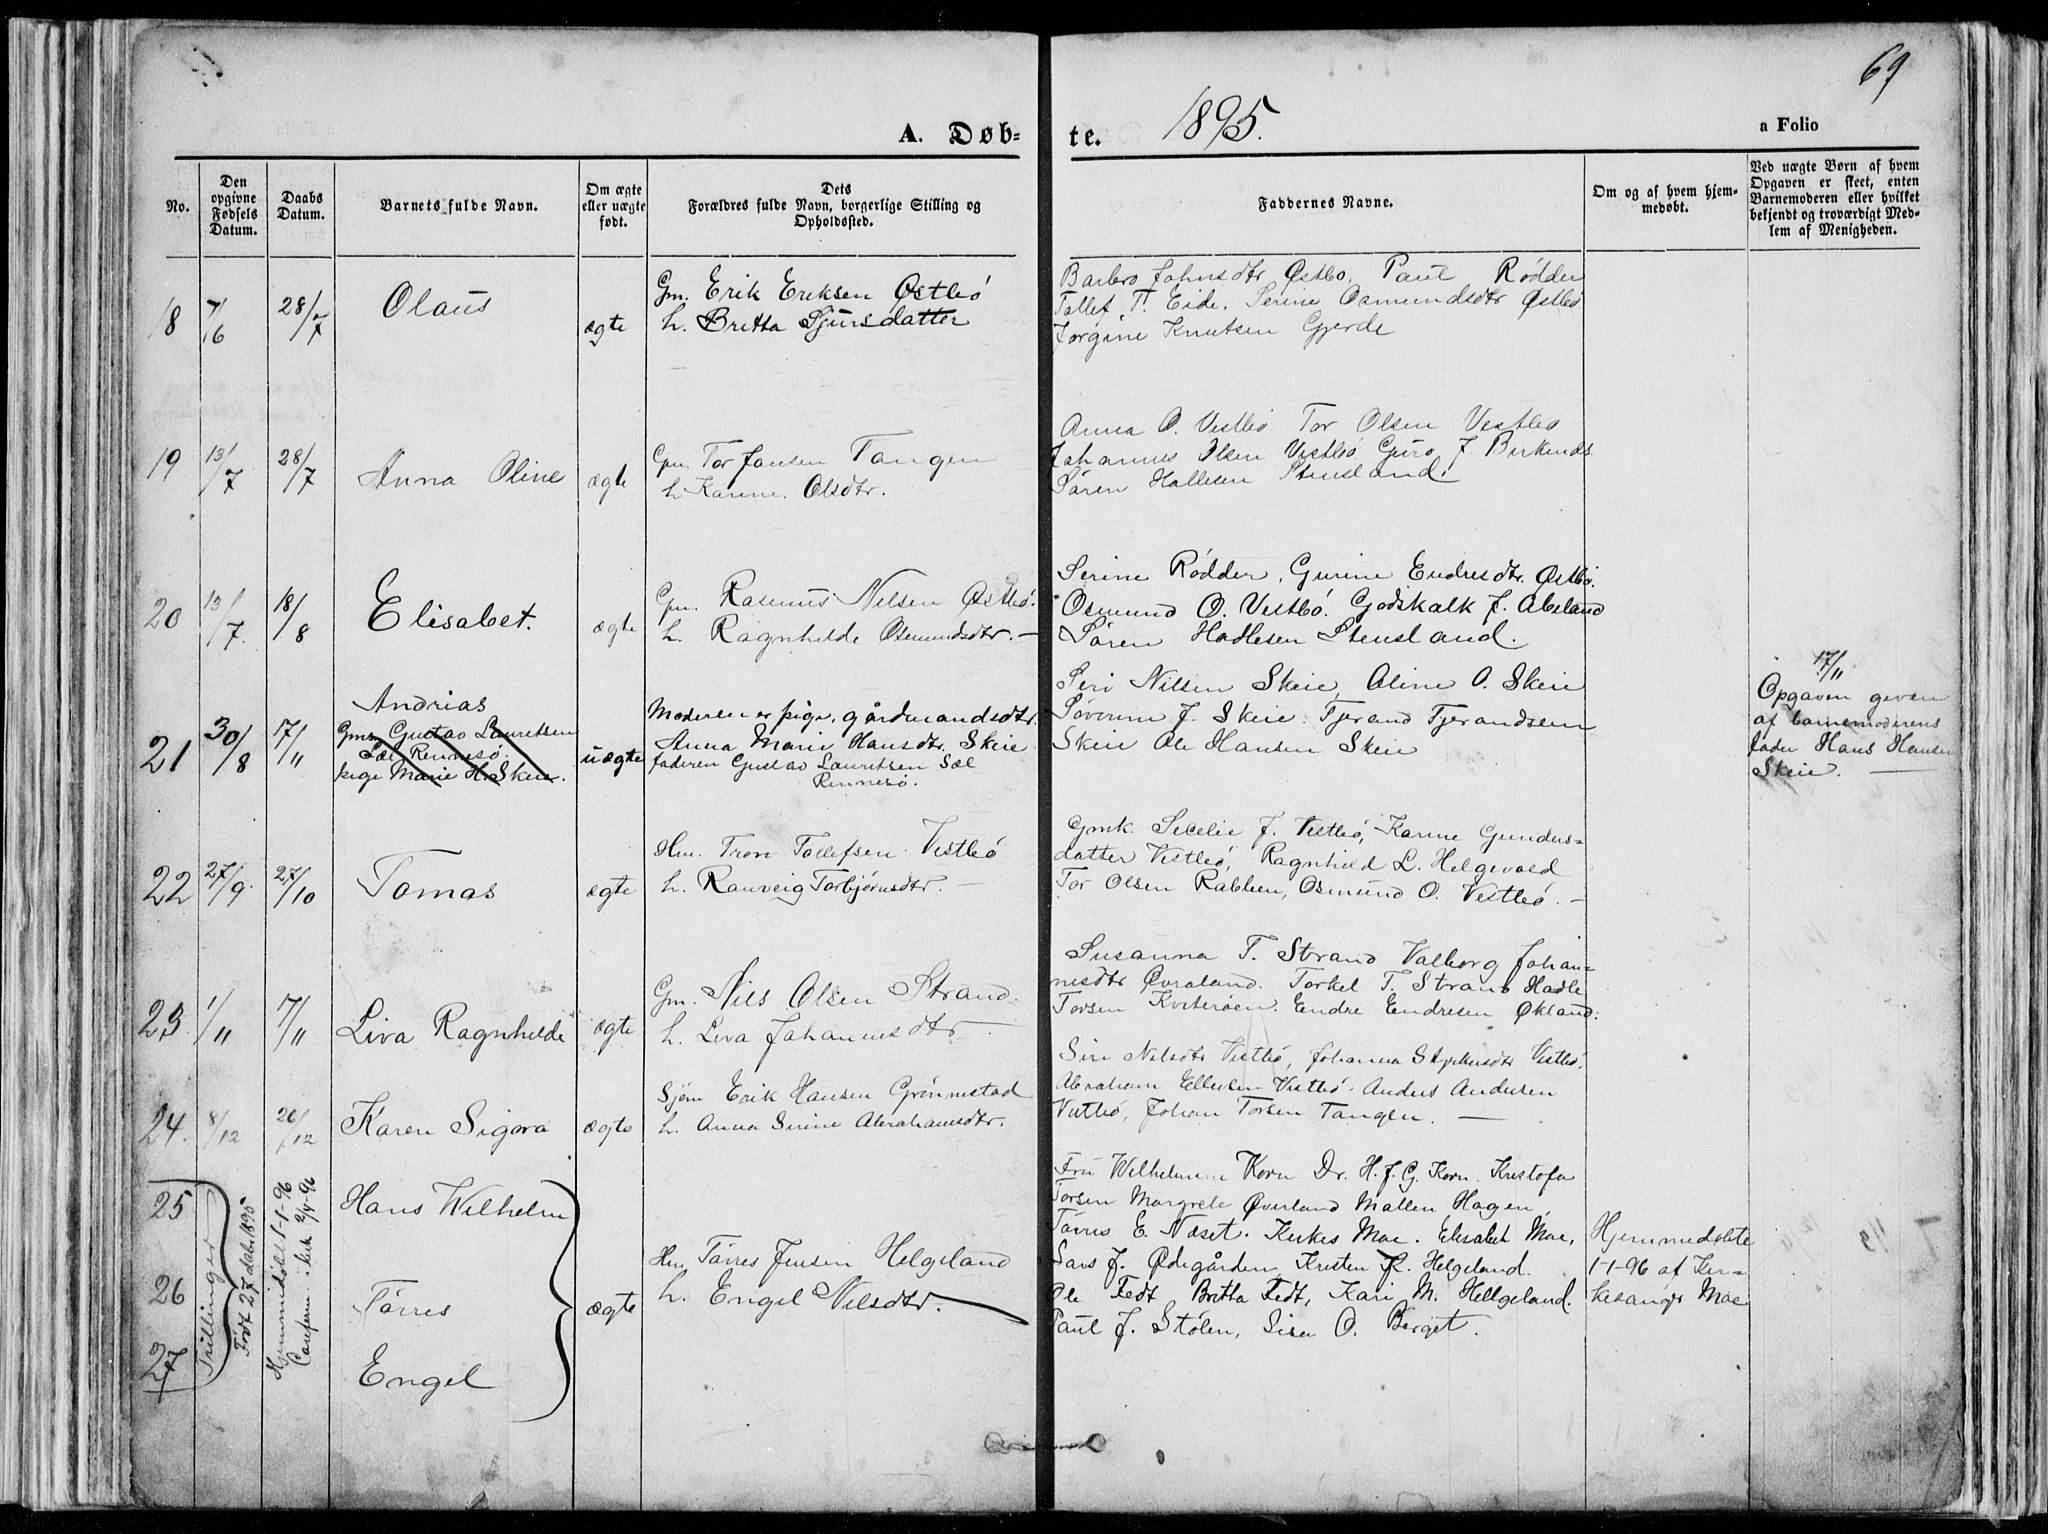 69
A. Døb- te. 1895.
a Folio
No.
Den opgivne Fødsels Datum.
Daabs Datum.
Barnets fulde Navn.
Om ægte eller uægte født.
Dets Forældres fulde Navn, borgerlige Stilling og Opholdssted.
Faddernes Navne.
Om og af hvem hjem-
medøbt.
Ved uægte Børn af hvem
Opgaven er skeet, enten
Barnemoderen eller hvilket
bekjendt og troværdigt Med-
lem af Menigheden.
18 28/7 Olaus ægte
Gm. Erik Eriksen Østbø
h. Britta Sjursdatter
Barbro Johnsdtr Østbo, Paul Rødder
Tollef T. Eide. Serine Osmundsdtr Østbø
Jørgine Knutsen Gjerde
19 13/7 28/7 Anna Oline ægte
Gm. Tor Jansen Tangen
h. Karine. Olsdtr.
Anna O. Vestbø Tor Olsen Vestbø
Johannes Olsen Vestbø, Guro J. Birkends
Søren Hallesen Stensland.
20 13/7 18/8 Elisabet. ægte
Gm. Rasmus Nilsen Østbø.
h. Ragnhilde Osmundsdtr. —
Serine Rødder, Gurine Endresdtr. Østbø.
Osmund O. Vestbø. Godskalk J. Abeland
Søren Hadlesen Stensland.
21 30/8 17/11 Andrias
Gm. Gustav Lauritsen
Sæl Rennesø.
pige Marie H. Skeie.
uægte
Moderen er pige, gårdmandsdtr.
Anna Marie Hansdtr. Skeie
faderen Gustav Lauritsen Sæl
Rennesø.
Siri Nilsen Skeie, Oline O. Skeie
Søverine J. Skeie. Tjerand Tjerandsen
Skeie Ole Hansen Skeie
17/11
Opgaven given
af barnemoderens
fader Hans Hansen
Skeie. —
22 27/9 27/10 Tomas ægte
Hm. Tron Tollefsen Vestbø
h. Ranveig Torbjørnsdtr. —
Gmk. Secelie J. Vestbø, Karine Gunders-
datter Vestbø, Ragnhild L. Helgevold
Tor Olsen Rabben, Osmund O. Vestbø. —
23 1/11 17/11 Liva Ragnhilde ægte
Gm. Nils Olsen Strand.
h. Liva Johannesdtr —
Susanna T. Strand Valborg Johan-
nesdtr Øvraland. Torkel T. Strand Hadle
Torsen Kviterøen. Endre Endresen Økland.
24. 8/12 26/12 Karen Sigvra ægte
Sjøm Erik Hansen Grønnestad
h. Anna Sirine Abrahamsdtr.
Siri Nilsdtr Vestbø, Johanna Vestbø.
Abraham Ellevsen Vestbø. Anders Andersen
Vestbø, Johan Torsen Tangen. —
25
26
27
Trillinger
Født 27 deb. 1895
Hjemmedøbt 1-1-96
Confirm. i kirk 2/4-96
Hans Wilhelm
Tørres
Engel
ægte
Hm. Tørres Jensen Helgeland
h. Engel Nilsdtr.
Fru Wilhelmine Korn Dr. H. J. G. Korn. Kristofa
Torsen Margrete Øverland Mallen Hagen,
Tørres E. Næset. Kirkes Moe. Elisabet Moe,
Lars J. Ødegården, Kristen Helgeland.
Ole Fedt Britta Fedt, Kari M. Hellgeland.
Paul J. Stølen, Siser O. Berget.
Hjemmedøbte
1-1-96 af Kir-
kesanger Moe